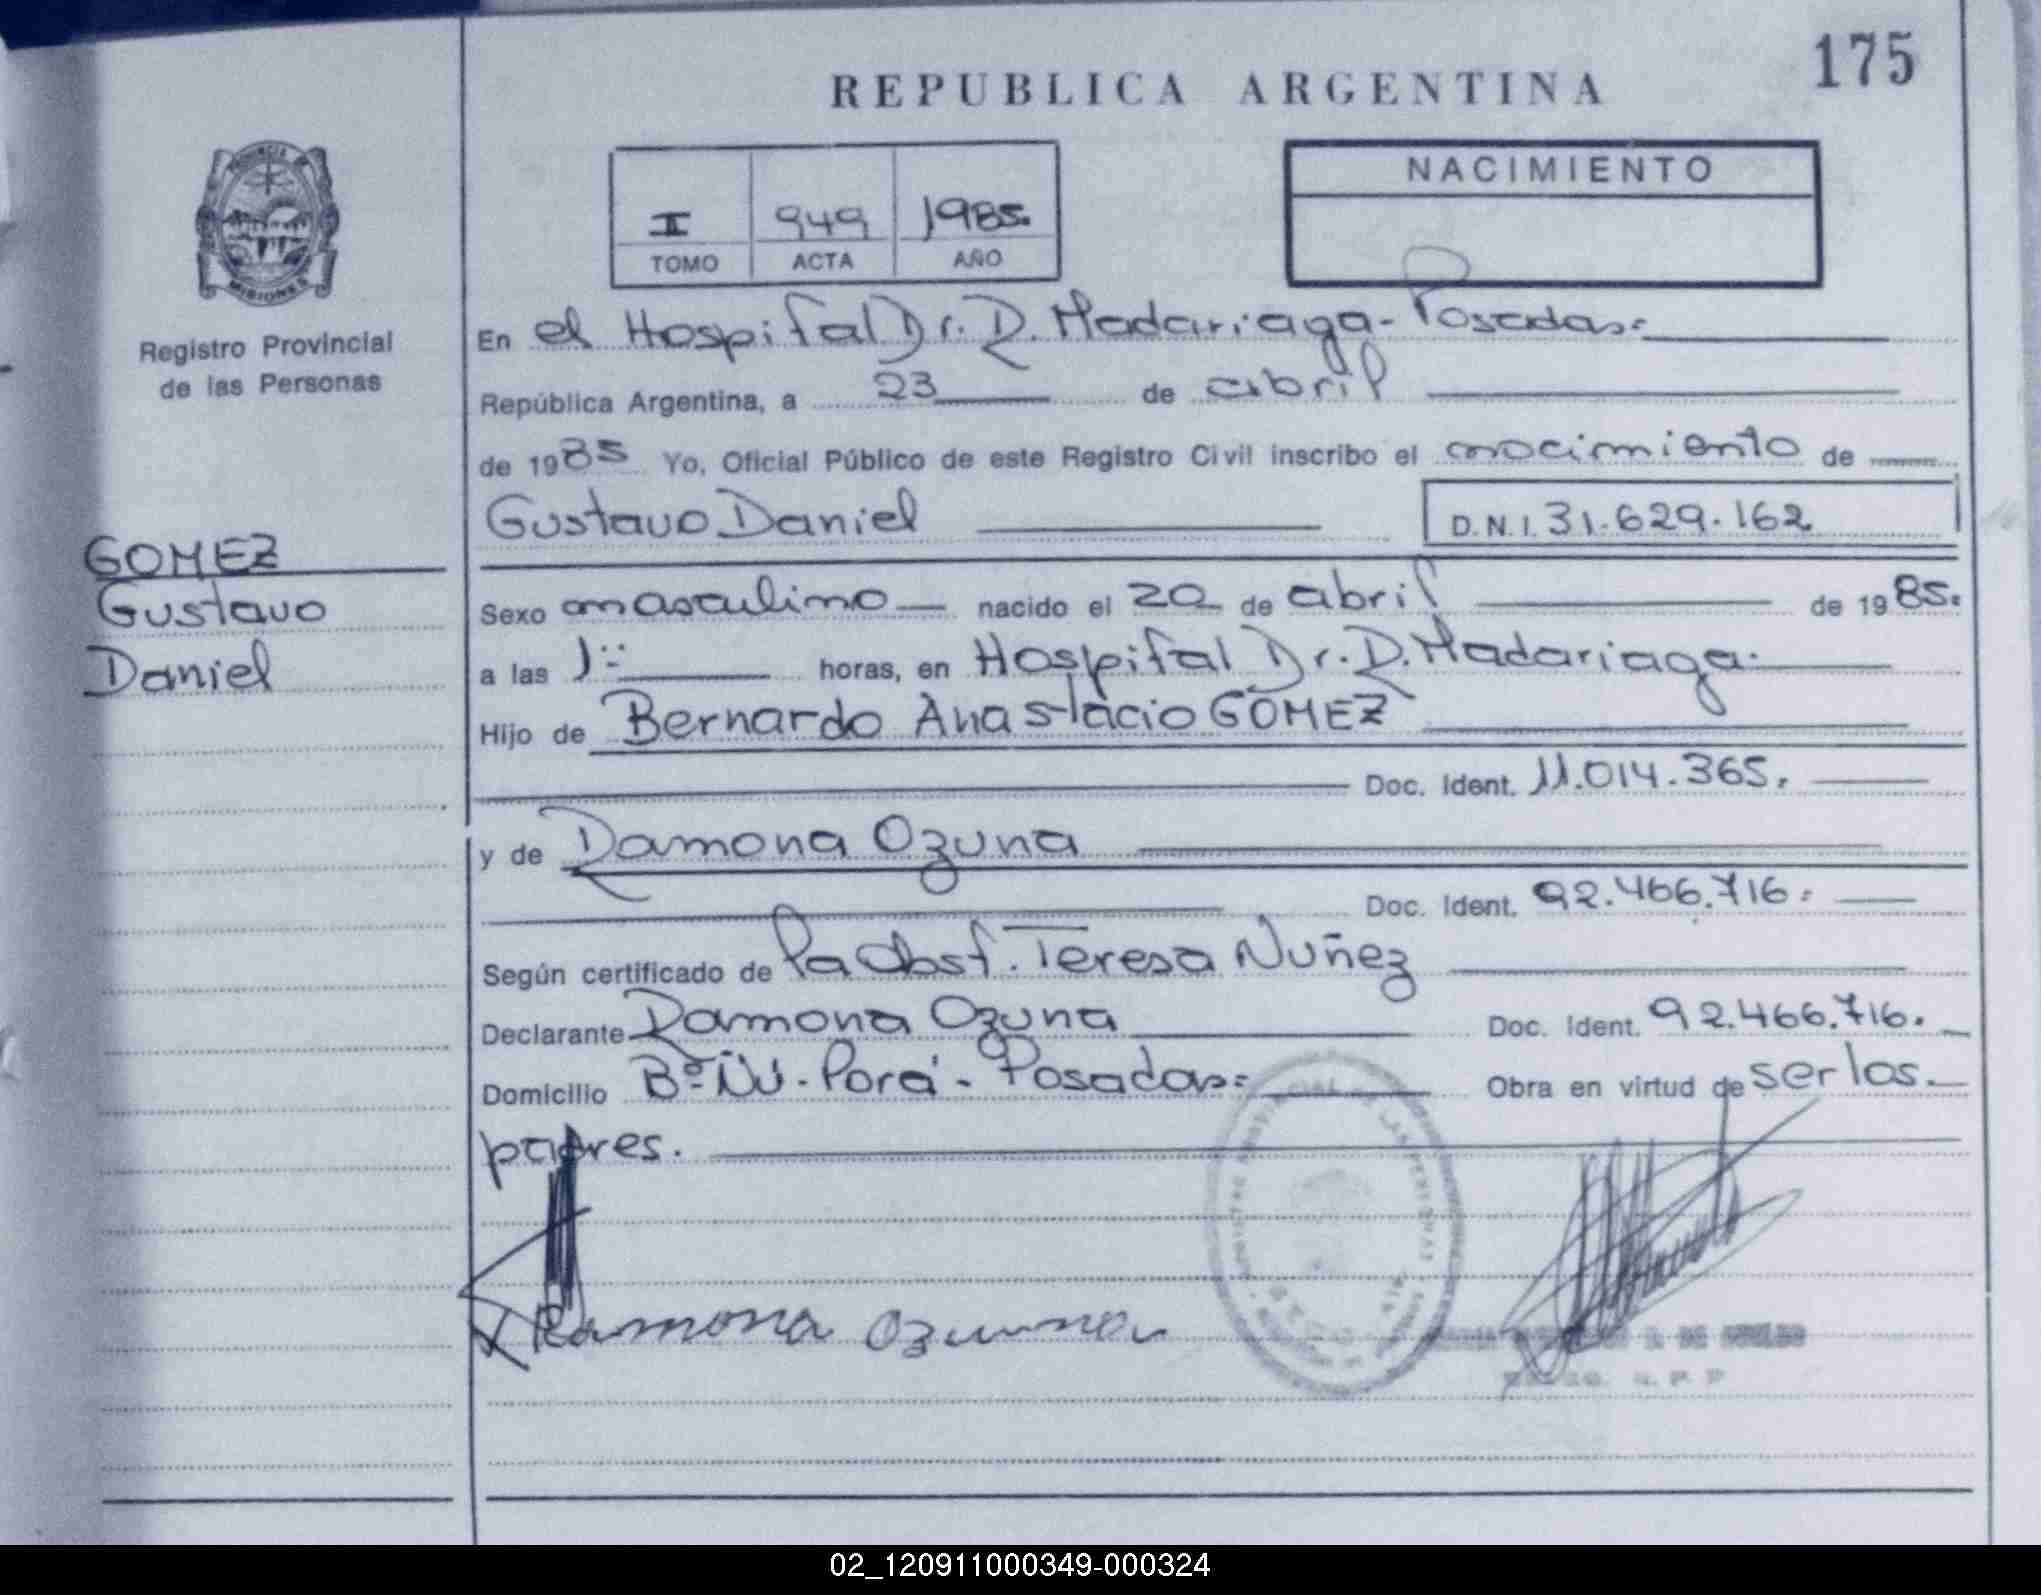 175
REPUBLICA ARGENTINA
NACIMIENTO
I 949 1985.
TOMO ACTA AÑO
PROVINCIA DE
MISIONES
Registro Provincial
de las Personas
GOMEZ
Gustavo
Daniel
En el Hospital Dr. R. Madariaga - Posadas.
República Argentina, a 23 de abril
de 1985 Yo, Oficial Público de este Registro Civil inscribo el nacimiento de
Gustavo Daniel D.N.I. 31.629.162
Sexo masculino nacido el 20 de abril de 1985.
a las 1:- horas, en Hospital Dr. R. Madariaga.
Hijo de Bernardo Anastacio GOMEZ
Doc. Ident. 11.014.365.
y de Ramona Ozuna
Doc. Ident. 92.466.716.
Según certificado de Pa Obst. Teresa Nuñez
Declarante Ramona Ozuna Doc. Ident. 92.466.716.
Domicilio Bº Ñu - Porá - Posadas Obra en virtud de ser los
padres.
Ramona Ozunna
02_120911000349-000324